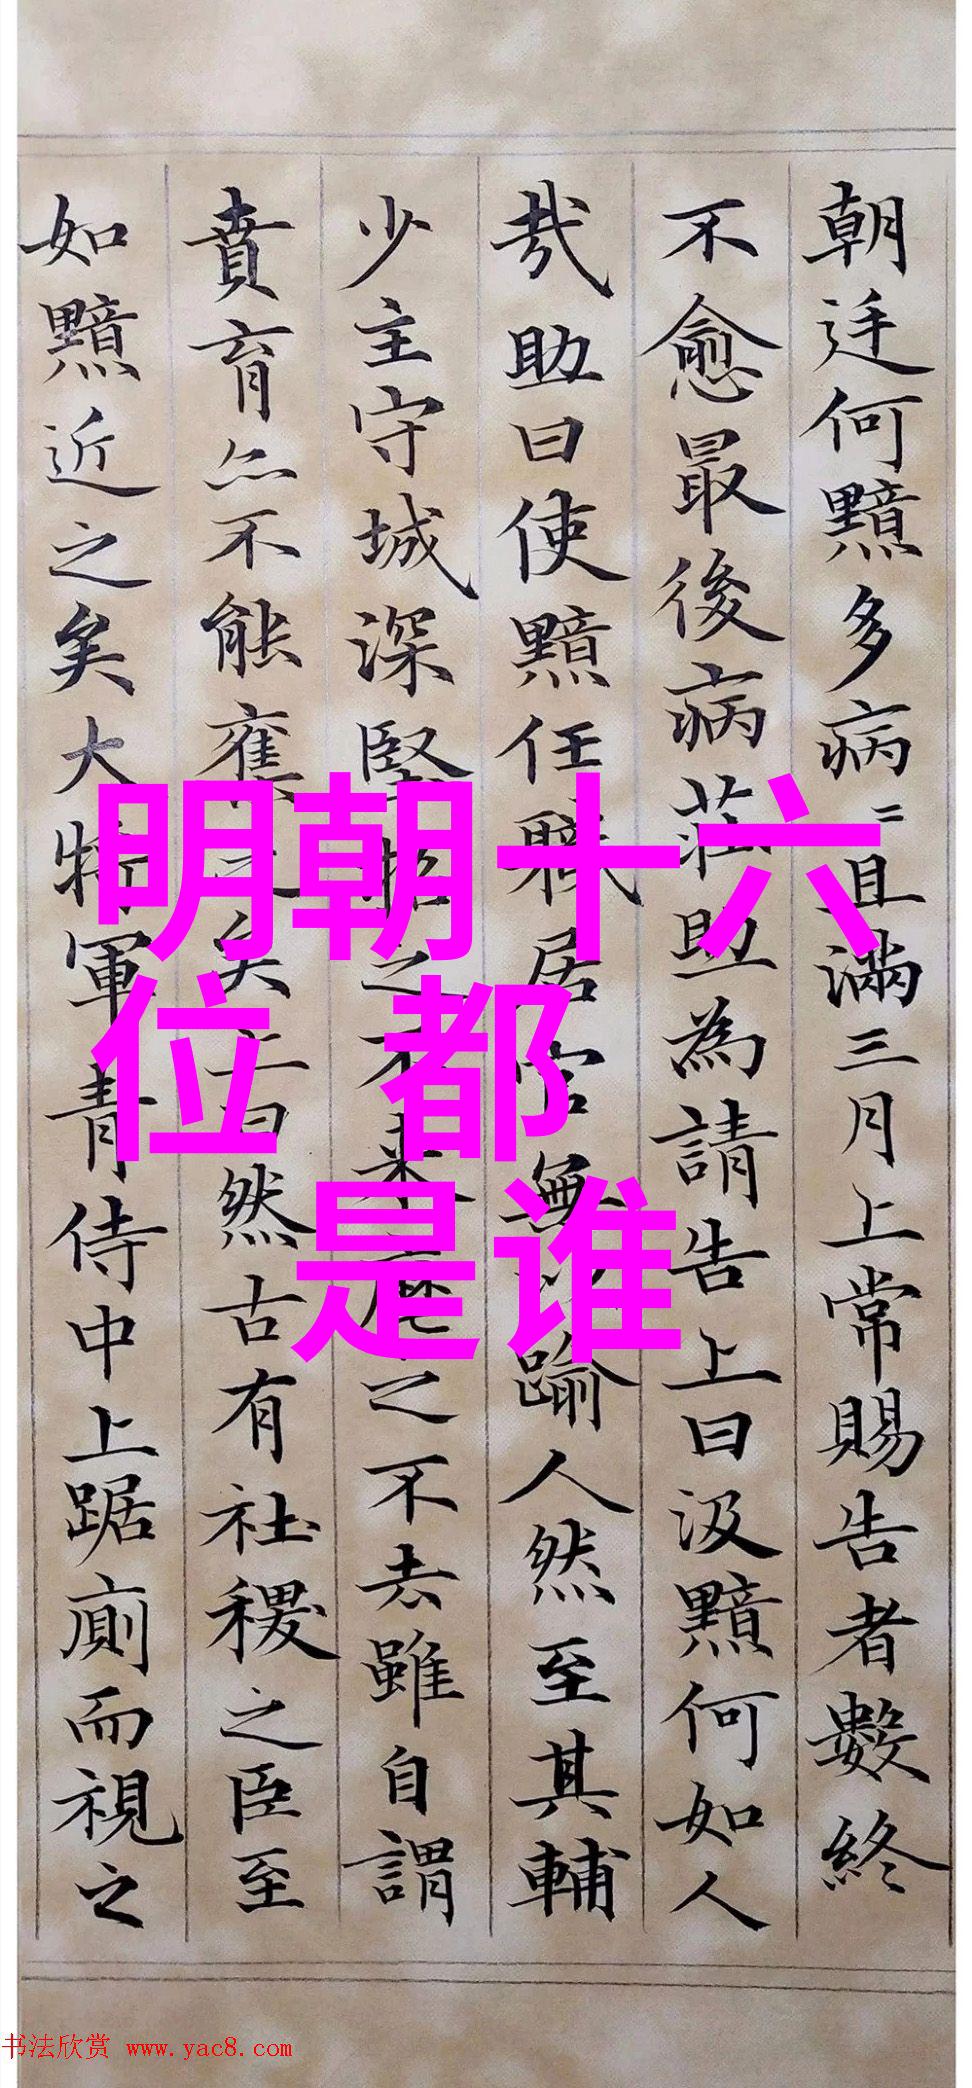 朝廷何黯多病〻且滿三月上常賜告者數終
不愈最後病莊助為請告上曰汲黯何如人
哉助曰使黯任職居官無以踰人然至其輔
少主守城深堅招之不来麾之不去雖自謂
賁育亦不能奪之矣上曰然古有社稷之臣至
如黯近之矣大将軍青侍中上踞廁而視之
明朝十六
位 都
是谁
书法欣赏 www.yac8.com